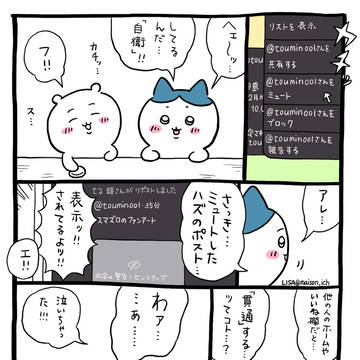 ヘェ〜ッ…
してる
んだ…
「自衛」!!
カチッ…
フ!!
ス…
リストを表示
@touminoolさんを
共有する
@touminoolさんを
ミュート
@touminoolさんを
ブロック
@touminoolさんを
報告する
アレ…
さっき…
ミュートした
ハズのポスト…
さんがリポストしました
@touminool・35分
スマズロのファンアート
表示ッ!!
されてるよッ!!
エ!!
LISA@maison_ich
他の人のホームや
いいね欄だと…
「貫通」する…
ッてコト…?
わァ…
…ぁ…
泣いちゃっ
た!!!